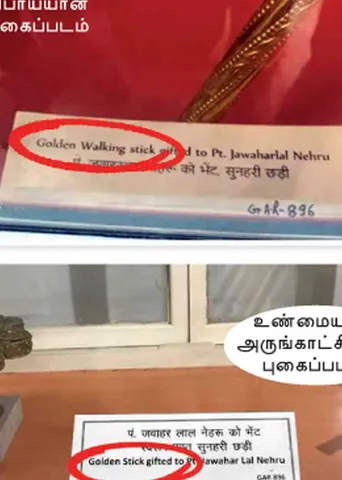 புகைப்படம்
Golden Walking stick gifted to Pt. Jawaharlal Nehru
पं. जवाहरलाल नेहरू को भेंट, सुनहरी छड़ी
GAR-896
உண்மைய
அருங்காட்சி
புகைப்பட
पं. जवाहर लाल नेहरू को भेंट
सुनहरी छड़ी
Golden Stick gifted to Pt. Jawahar Lal Nehru
GAR 896